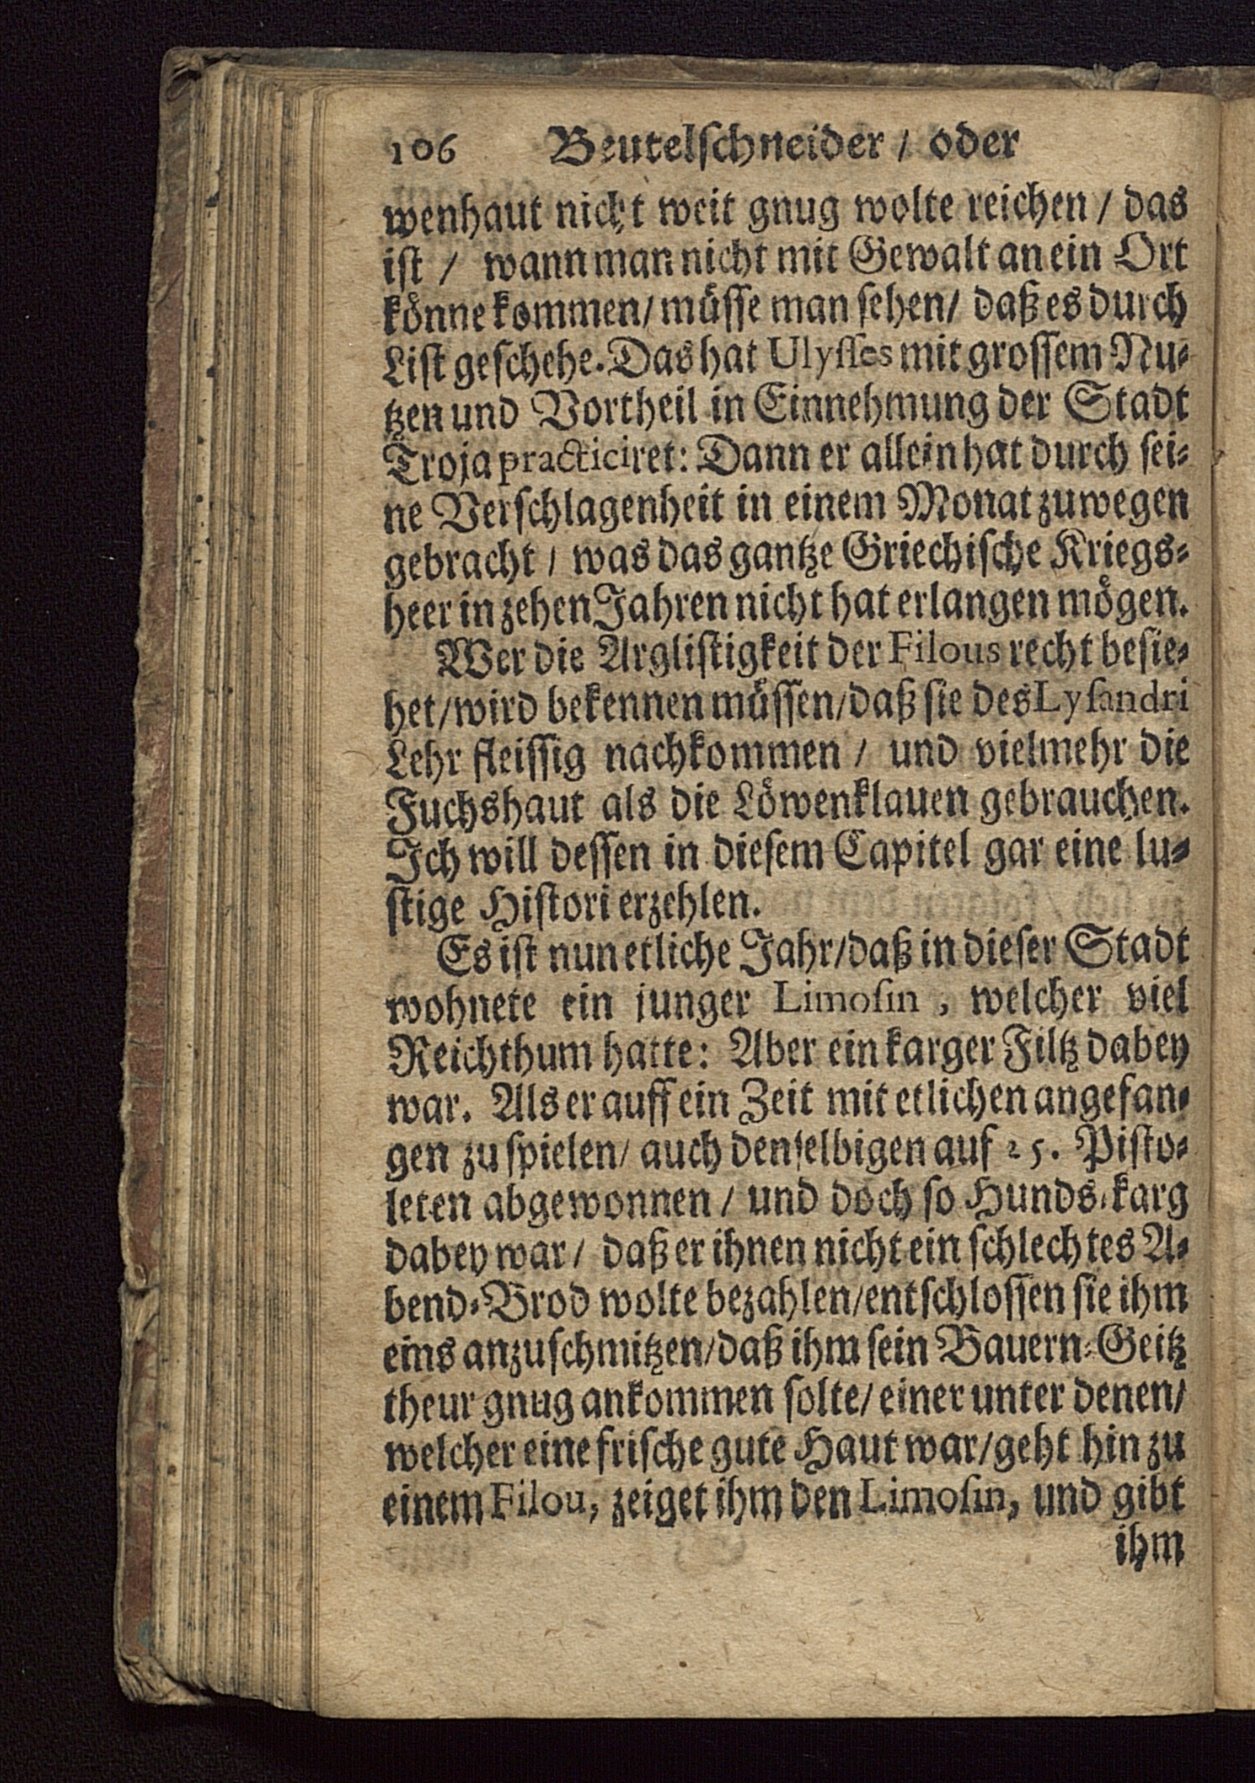 106 Beutelschneider / oder
wenhaut nicht weit gnug wolte reichen / das
ist / wann man nicht mit Gewalt an ein Ort
könne kommen / müsse man sehen / daß es durch
List geschehe. Das hat Ulysses mit grossem Nu-
tzen und Vortheil in Einnehmung der Stadt
Troja practiciret: Dann er allein hat durch sei-
ne Verschlagenheit in einem Monat zuwegen
gebracht / was das gantze Griechische Kriegs-
heer in zehen Jahren nicht hat erlangen mögen.
Wer die Arglistigkeit der Filous recht besie-
het / wird bekennen müssen / daß sie des Lysandri
Lehr fleissig nachkommen / und vielmehr die
Fuchshaut als die Löwenklauen gebrauchen.
Ich will dessen in diesem Capitel gar eine lu-
stige Histori erzehlen.
Es ist nun etliche Jahr / daß in dieser Stadt
wohnete ein junger Limosin, welcher viel
Reichthum hatte: Aber ein karger Filtz dabey
war. Als er auff ein Zeit mit etlichen angefan-
gen zu spielen / auch denselbigen auf 25. Pisto-
leten abgewonnen / und doch so Hunds-karg
dabey war / daß er ihnen nicht ein schlechtes A-
bend-Brod wolte bezahlen / entschlossen sie ihm
eins anzuschmitzen / daß ihm sein Bauern-Geitz
theur gnug ankommen solte / einer unter denen /
welcher eine frische gute Haut war / geht hin zu
einem Filou, zeiget ihm den Limosin, und gibt
ihm